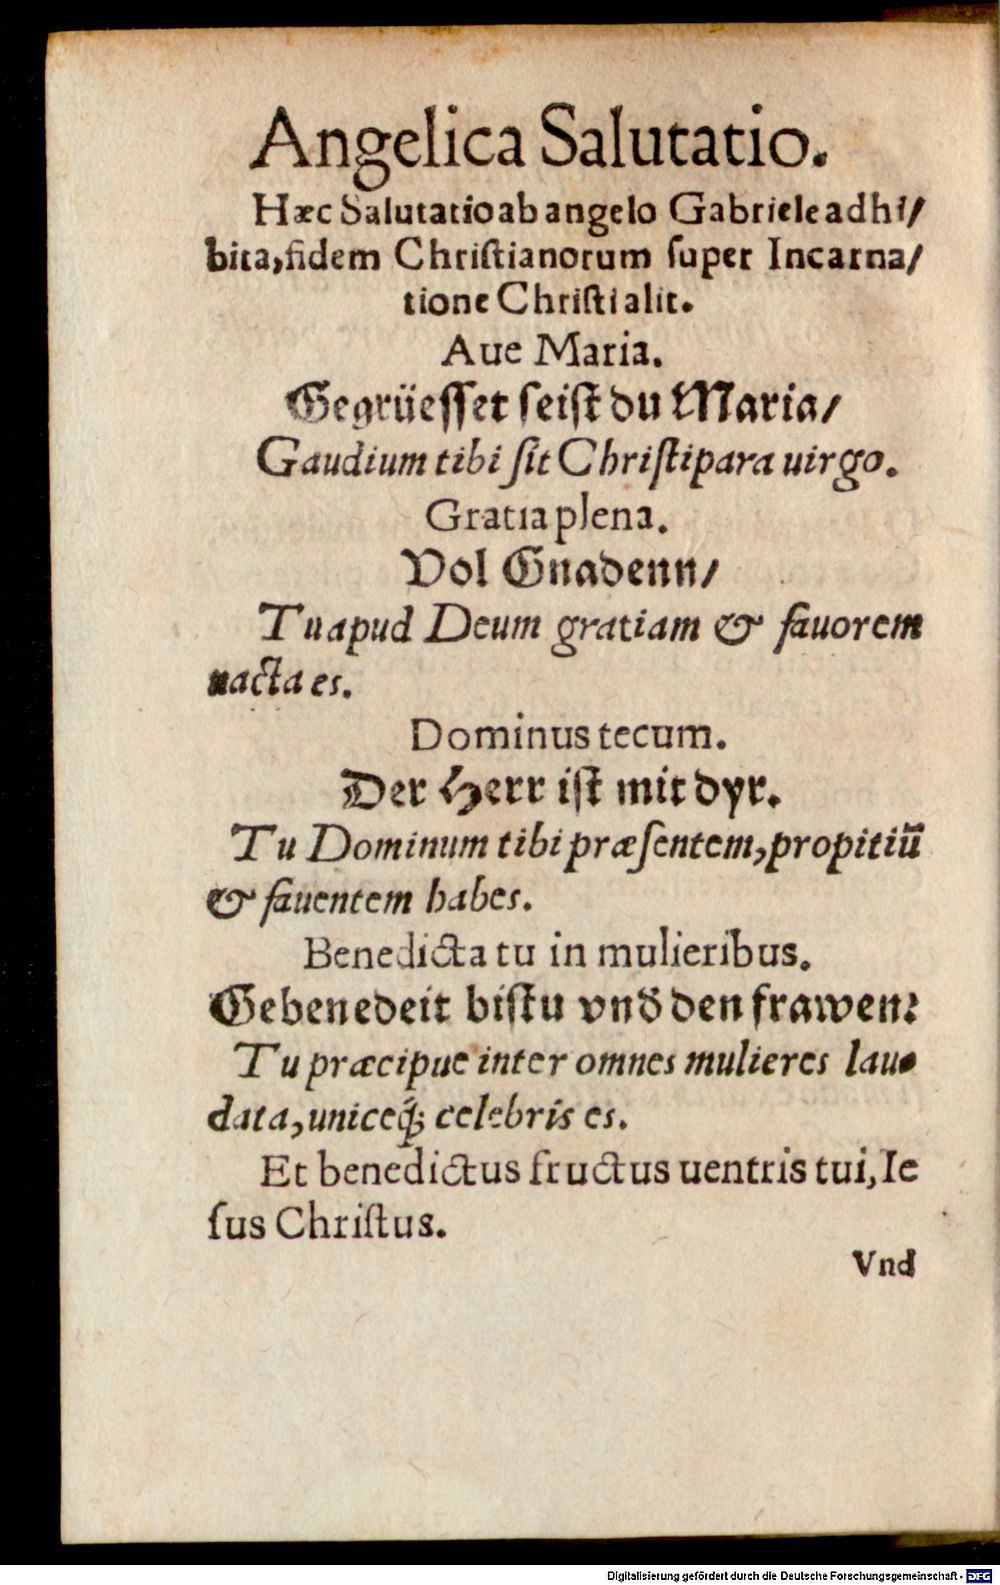 Angelica Salutatio.
Hæc Salutatio ab angelo Gabriele adhi/
bita, fidem Chriſtianorum ſuper Incarna/
tione Chriſti alit.
Aue Maria.
Gegrüeſſet ſeiſt du Maria/
Gaudium tibi ſit Chriſtipara uirgo.
Gratia plena.
Vol Gnadenn/
Tu apud Deum gratiam & fauorem
nacta es.
Dominus tecum.
Der Herr iſt mit dyr.
Tu Dominum tibi præſentem, propitiũ
& fauentem habes.
Benedicta tu in mulieribus.
Gebenedeit biſtu vnd̄ den frawen:
Tu præcipue inter omnes mulieres lau-
data, uniceq́; celebris es.
Et benedictus fructus uentris tui, Ie
ſus Chriſtus.
Vnd
Digitalisierung gefördert durch die Deutsche Forschungsgemeinschaft - DFG